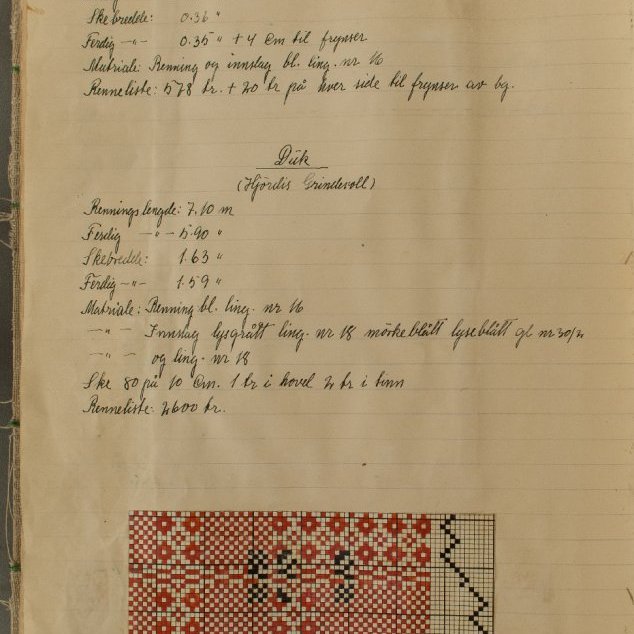 Skebredde: 0.36 "
Ferdig -"- 0.35 " + 4 cm til frynser
Matriale: Renning og innslag bl. ling. nr 16
Renneliste: 578 tr. + 20 tr på hver side til frynser av bg.
Duk
(Hjördis Grindevoll)
Renningslengde: 7.10 m
Ferdig -"- 5.90 "
Skebredde: 1.63 "
Ferdig -"- 1.59 "
Matriale: Renning bl. ling. nr 16
-"- Innslag lysgrått ling. nr 18 mörkeblått lyseblått gl nr 30/2
-"- og ling. nr 18
Ske 80 på 10 cm. 1 tr i hovel 2 tr i tinn
Renneliste: 2600 tr.